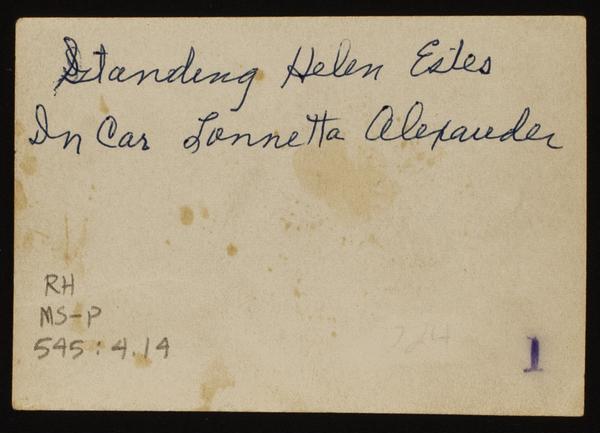 Standing Helen Estes
In Car Lonnetta Alexander
RH
MS-P
545:4.14
724
1